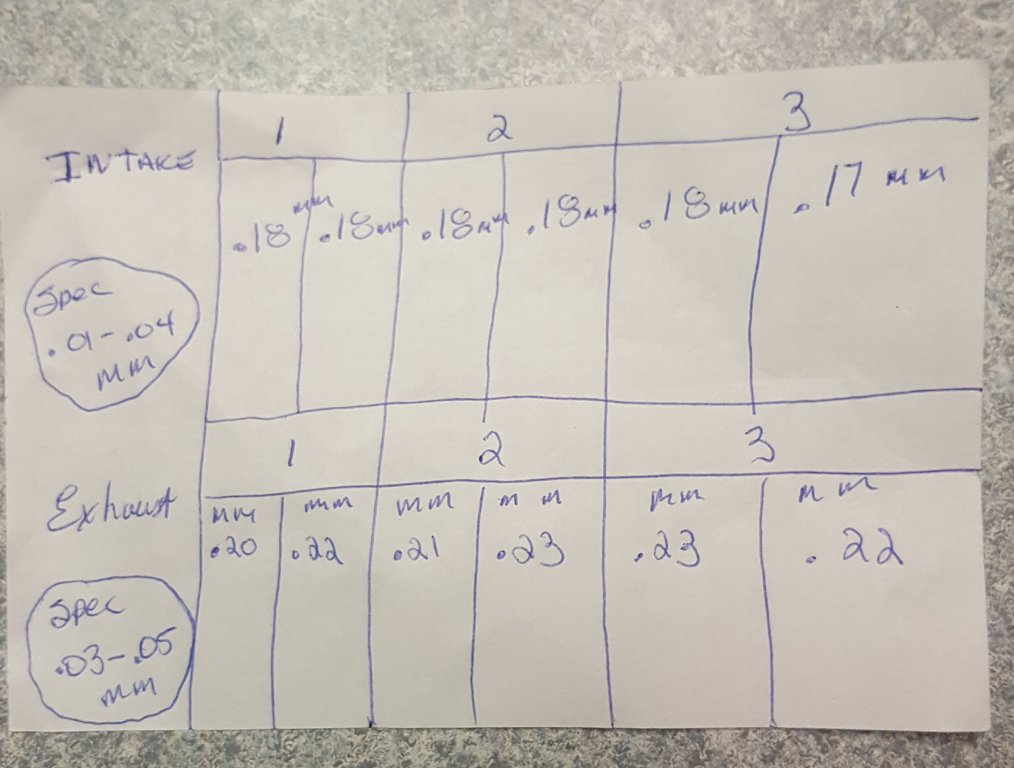 1 2 3
INTAKE
.18 mm .18mm .18mm .18mm .18mm .17 mm
Spec
.01-.04
mm
1 2 3
Exhaust
mm mm mm mm mm mm
.20 .22 .21 .23 .23 .22
Spec
.03-.05
mm